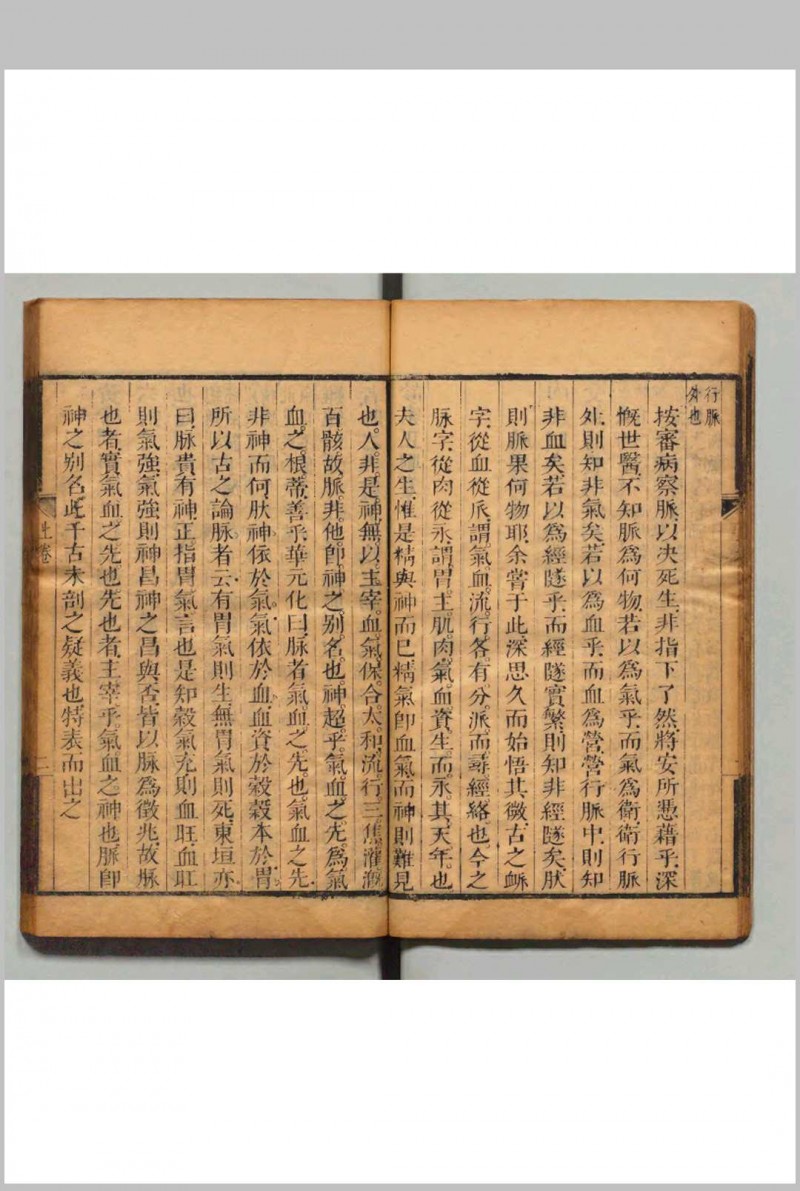 行脈
外也
按審病察脈以決死生非指下了然將安所憑藉乎深
慨世醫不知脈為何物若以為氣乎而氣為衛衛行脈
外則知非氣矣若以為血乎而血為營營行脈中則知
非血矣若以為經隧乎而經隧實繁則知非經隧矣肰
則脈果何物耶余嘗于此深思久而始悟其微古之衇
字從血從𠂢謂氣血流行各有分派而尋經絡也今之
脈字從肉從永謂胃主肌肉氣血資生而永其天年也
夫人之生惟是精與神而已精氣卽血氣而神則難見
也人非是神無以主宰血氣保合太和流行三焦灌溉
百骸故脈非他卽神之別名也神超乎氣血之先為氣
血之根蒂善乎華元化曰脈者氣血之先也氣血之先
非神而何肰神依於氣氣依於血血資於穀穀本於胃
所以古之論脈者云有胃氣則生無胃氣則死東垣亦
曰脈貴有神正指胃氣言也是知穀氣充則血旺血旺
則氣強氣強則神昌神之昌與否皆以脈為徵兆故脈
也者實氣血之先也先也者主宰乎氣血之神也脈卽
神之別名此千古未剖之疑義也特表而出之
上卷
三